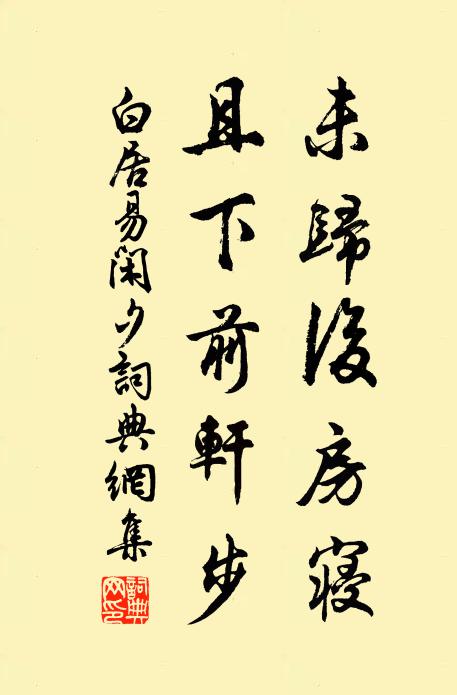 未歸後房寢
且下前軒步
白居易閑夕詞典網集
詞典
网印